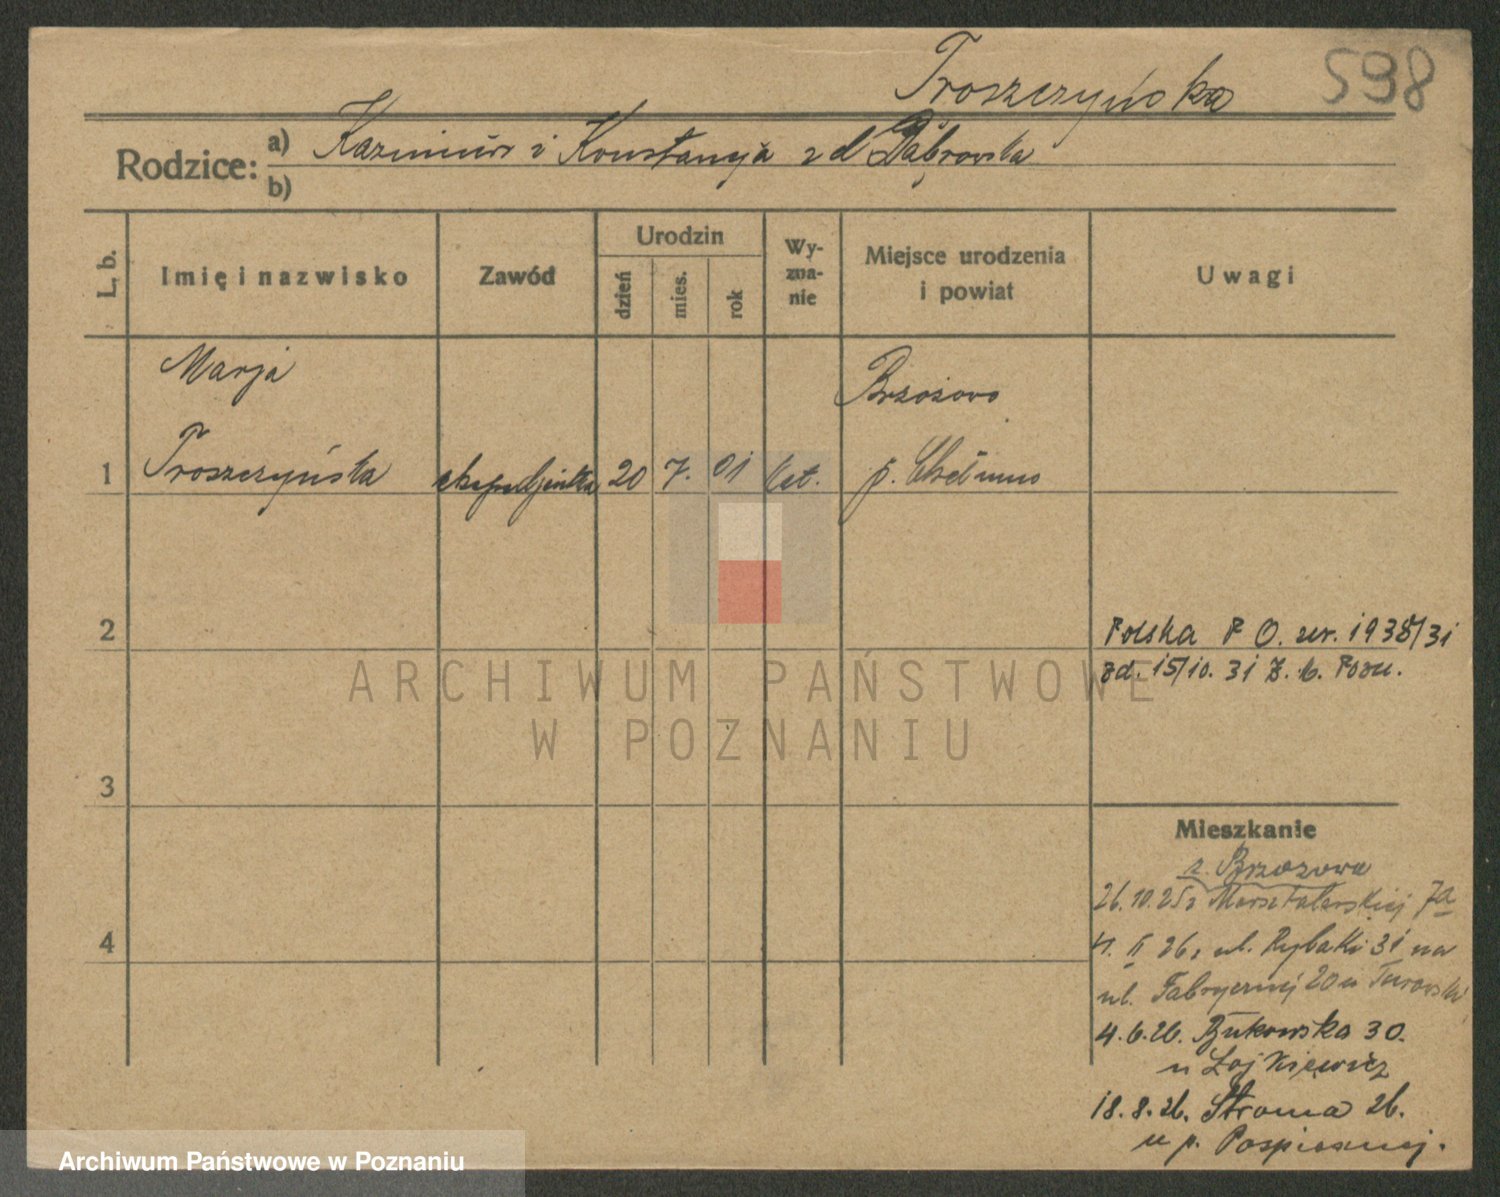 Troszczyńska
598
Rodzice: a) Kazimierz i Konstancja z d Dąbrowska
b)
L. b.
Imię i nazwisko
Zawód
Urodzin
dzień
mies.
rok
Wy-
zna-
nie
Miejsce urodzenia
i powiat
Uwagi
Marja
Brzozowo
1 Troszczyńska ekspedjentka 20 7. 01 kat. p. Chełmno
2
Polska P O. 1938/31
zd. 15/10. 31 Pozn.
ARCHIWUM PAŃSTWOWE
W POZNANIU
3
Mieszkanie
z Brzozowa
26.10.25 z Marsztalerskiej 7a
4
II 26 z ul. Rybaki 31 na
ul. Fabrycznej 20 u Turowski
4.6.26. Bukowska 30.
u Zojkiewicz
18.8.26. Stroma 26.
u p. Pospiesznej.
Archiwum Państwowe w Poznaniu